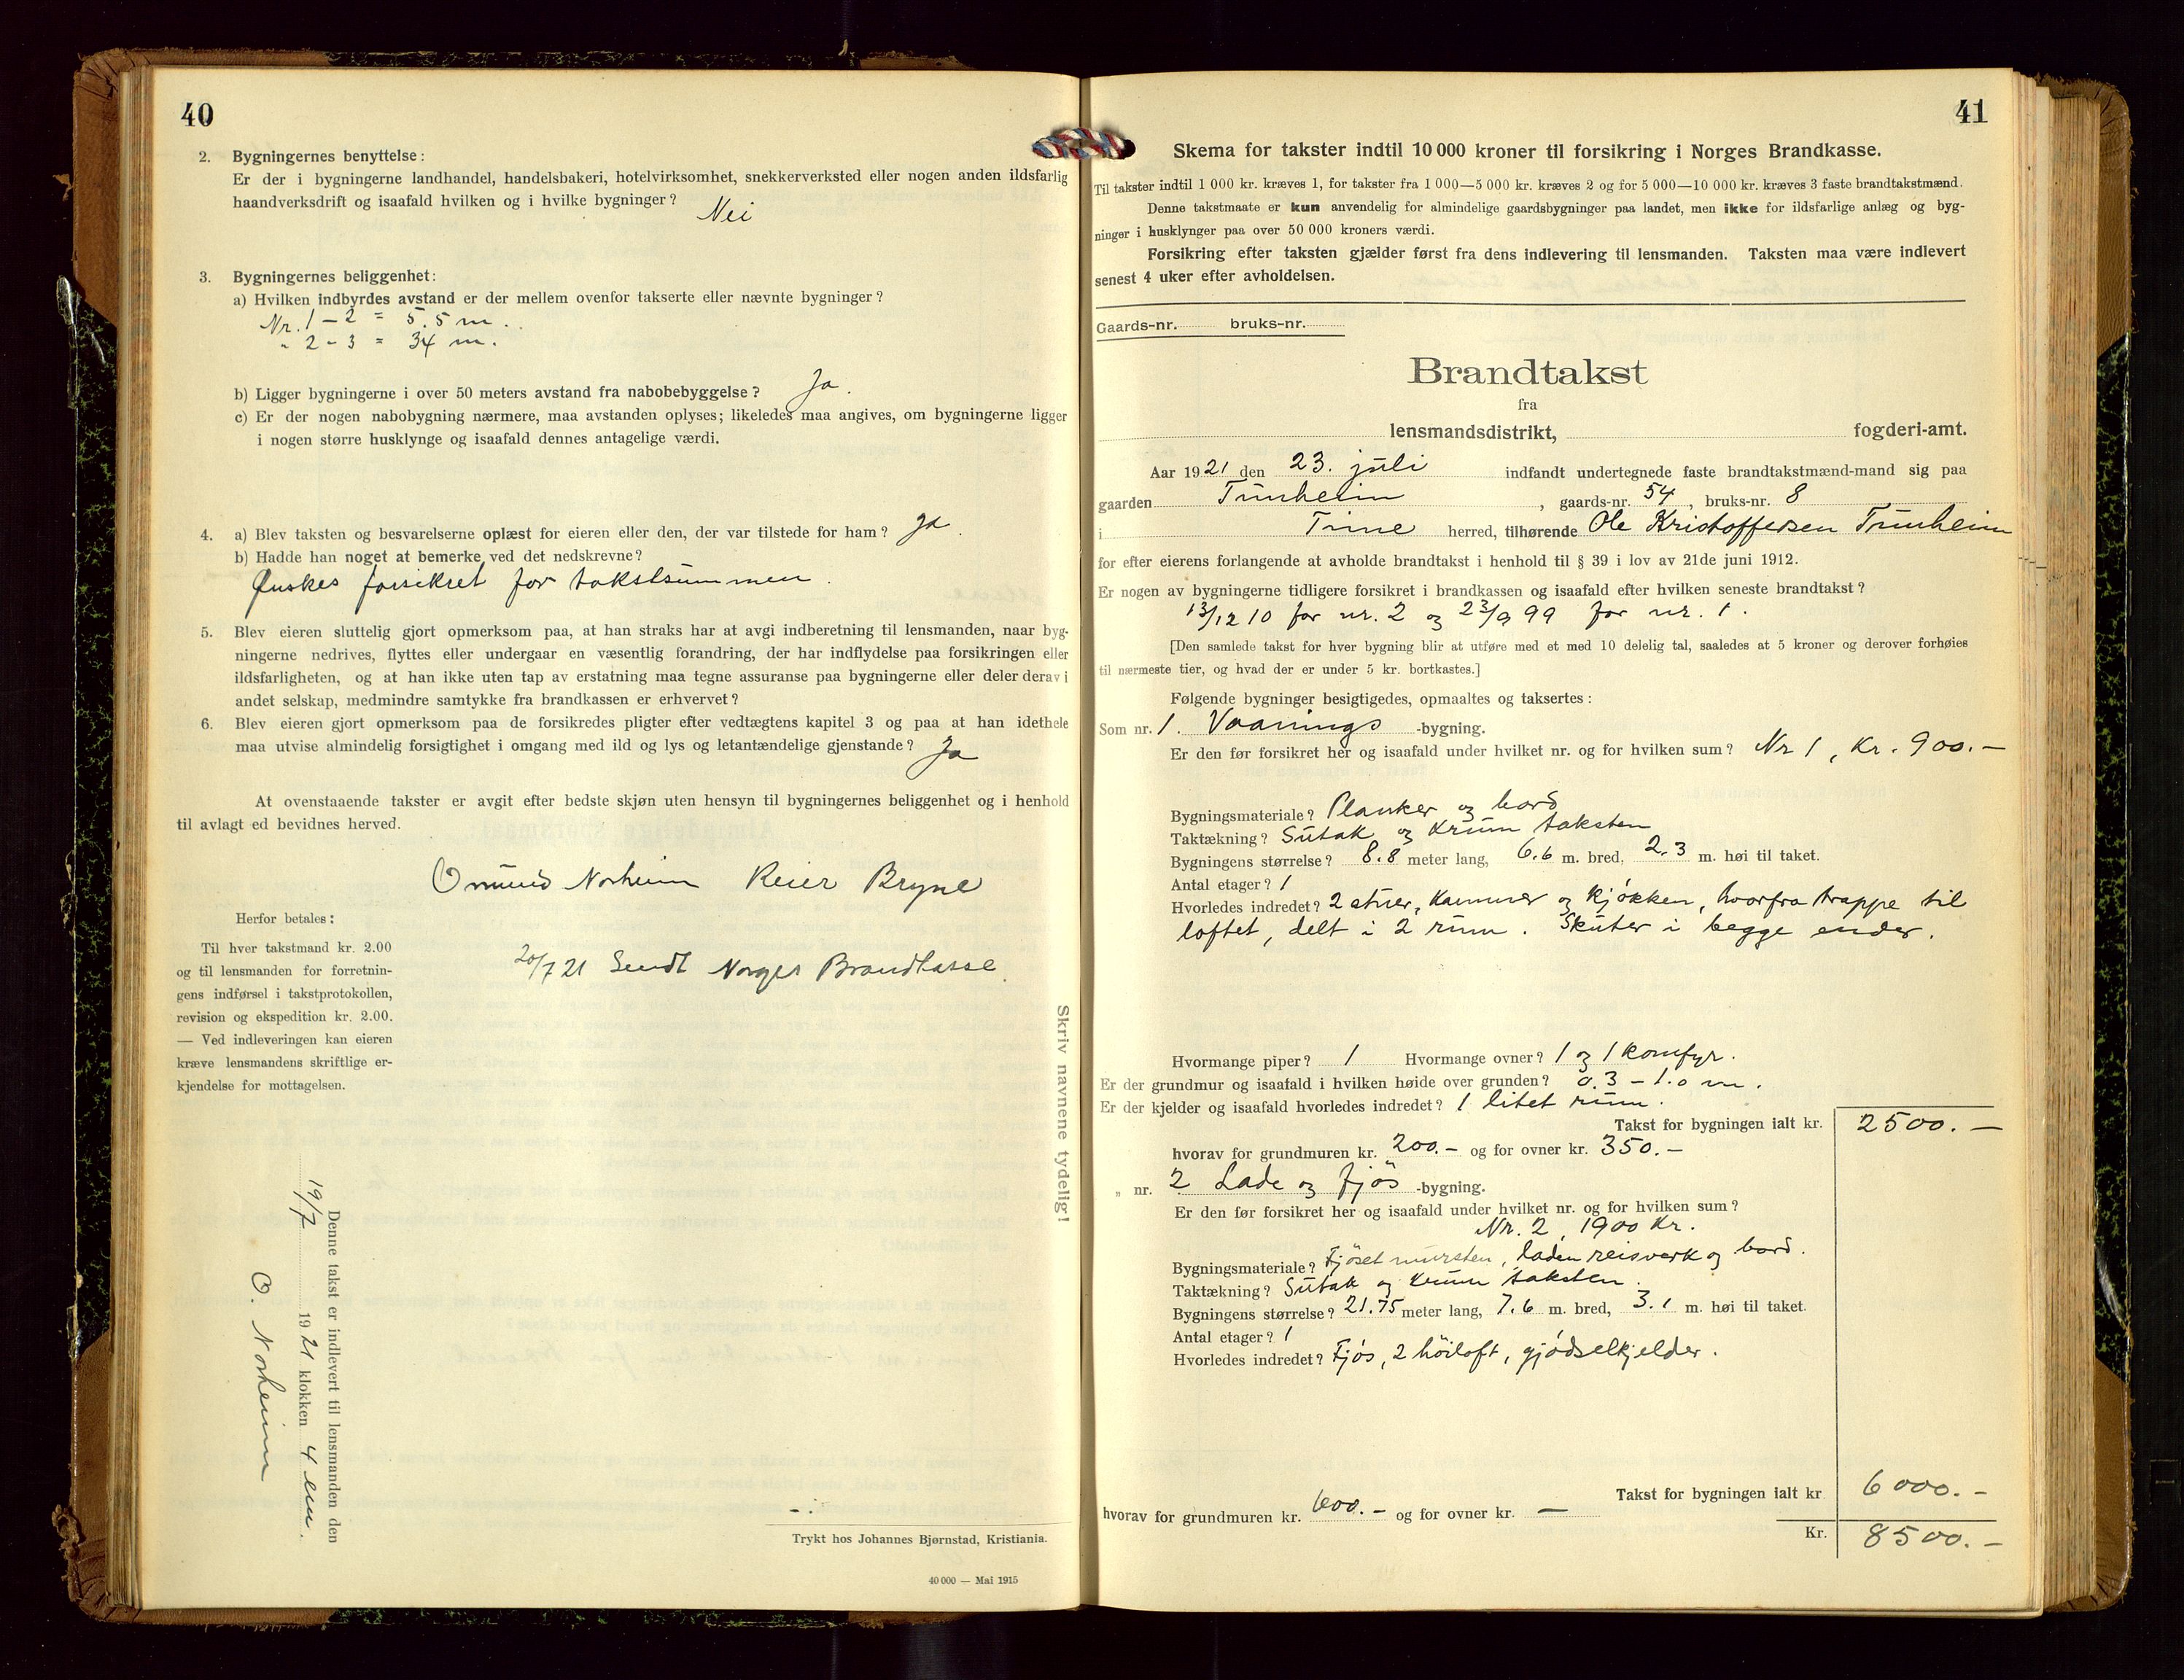 40
2. Bygningernes benyttelse:
Er der i bygningerne landhandel, handelsbakeri, hotelvirksomhet, snekkerverksted eller nogen anden ildsfarlig
haandverksdrift og isaafald hvilken og i hvilke bygninger? Nei
3. Bygningernes beliggenhet:
a) Hvilken indbyrdes avstand er der mellem ovenfor takserte eller nævnte bygninger?
Nr. 1 - 2 = 5.5 m.
" 2 - 3 = 34 m.
b) Ligger bygningerne i over 50 meters avstand fra nabobebyggelse? Ja.
c) Er der nogen nabobygning nærmere, maa avstanden oplyses; likeledes maa angives, om bygningerne ligger
i nogen større husklynge og isaafald dennes antagelige værdi.
4. a) Blev taksten og besvarelserne oplæst for eieren eller den, der var tilstede for ham? Ja.
b) Hadde han noget at bemerke ved det nedskrevne?
Ønskes forsikret for takstsummen.
5. Blev eieren sluttelig gjort opmerksom paa, at han straks har at avgi indberetning til lensmanden, naar byg-
ningerne nedrives, flyttes eller undergaar en væsentlig forandring, der har indflydelse paa forsikringen eller
ildsfarligheten, og at han ikke uten tap av erstatning maa tegne assuranse paa bygningerne eller deler derav i
andet selskap, medmindre samtykke fra brandkassen er erhvervet?
6. Blev eieren gjort opmerksom paa de forsikredes pligter efter vedtægtens kapitel 3 og paa at han idethele
maa utvise almindelig forsigtighet i omgang med ild og lys og letantændelige gjenstande? Ja
At ovenstaaende takster er avgit efter bedste skjøn uten hensyn til bygningernes beliggenhet og i henhold
til avlagt ed bevidnes herved.
Omund Norheim Reier Bryne
Herfor betales:
Til hver takstmand kr. 2.00
og til lensmanden for forretnin-
gens indførsel i takstprotokollen,
revision og ekspedition kr. 2.00.
— Ved indleveringen kan eieren
kræve lensmandens skriftlige er-
kjendelse for mottagelsen.
20/7 21 Sendt Norges Brandkasse.
Denne takst er indlevert til lensmanden den
19/7 1921 klokken 4 em.
O. Norheim
Skriv navnene tydelig!
Trykt hos Johannes Bjørnstad, Kristiania.
40 000 — Mai 1915
41
Skema for takster indtil 10 000 kroner til forsikring i Norges Brandkasse.
Til takster indtil 1 000 kr. kræves 1, for takster fra 1 000—5 000 kr. kræves 2 og for 5 000—10 000 kr. kræves 3 faste brandtakstmænd.
Denne takstmaate er kun anvendelig for almindelige gaardsbygninger paa landet, men ikke for ildsfarlige anlæg og byg-
ninger i husklynger paa over 50 000 kroners værdi.
Forsikring efter taksten gjælder først fra dens indlevering til lensmanden. Taksten maa være indlevert
senest 4 uker efter avholdelsen.
Gaards-nr. bruks-nr.
Brandtakst
fra
lensmandsdistrikt, fogderi-amt.
Aar 1921 den 23. juli indfandt undertegnede faste brandtakstmænd-mand sig paa
gaarden Tunheim, gaards-nr. 54, bruks-nr. 8
i Time herred, tilhørende Ole Kristoffersen Tunheim
for efter eierens forlangende at avholde brandtakst i henhold til § 39 i lov av 21de juni 1912.
Er nogen av bygningerne tidligere forsikret i brandkassen og isaafald efter hvilken seneste brandtakst?
13/12 10 for nr. 2 og 23/9 99 for nr. 1.
[Den samlede takst for hver bygning blir at utføre med et med 10 delelig tal, saaledes at 5 kroner og derover forhøies
til nærmeste tier, og hvad der er under 5 kr. bortkastes.]
Følgende bygninger besigtigedes, opmaaltes og taksertes:
Som nr. 1. Vaanings -bygning.
Er den før forsikret her og isaafald under hvilket nr. og for hvilken sum? Nr 1, Kr. 900.—
Bygningsmateriale? Planker og bord
Taktækning? Sutak og krum taksten
Bygningens størrelse? 8.8 meter lang, 6.6 m. bred, 2.3 m. høi til taket.
Antal etager? 1
Hvorledes indredet? 2 stuer, kammer og kjøkken, hvorfra trappe til
loftet, delt i 2 rum. Skuter i begge ender.
Hvormange piper? 1 Hvormange ovner? 1 og 1 komfyr.
Er der grundmur og isaafald i hvilken høide over grunden? 0.3 - 1.0 m.
Er der kjelder og isaafald hvorledes indredet? 1 litet rum.
Takst for bygningen ialt kr. 2500.—
hvorav for grundmuren kr. 200.— og for ovner kr. 350.—
" nr. 2 Lade og fjøs -bygning.
Er den før forsikret her og isaafald under hvilket nr. og for hvilken sum?
Nr. 2, 1900 Kr.
Bygningsmateriale? Fjøset mursten, laden reisverk og bord.
Taktækning? Sutak og krum taksten.
Bygningens størrelse? 21.75 meter lang, 7.6 m. bred, 3.1 m. høi til taket.
Antal etager? 1
Hvorledes indredet? Fjøs, 2 höiloft, gjødselkjelder.
Takst for bygningen ialt kr 6000.—
hvorav for grundmuren kr. 600.— og for ovner kr. —
Kr. 8500.—